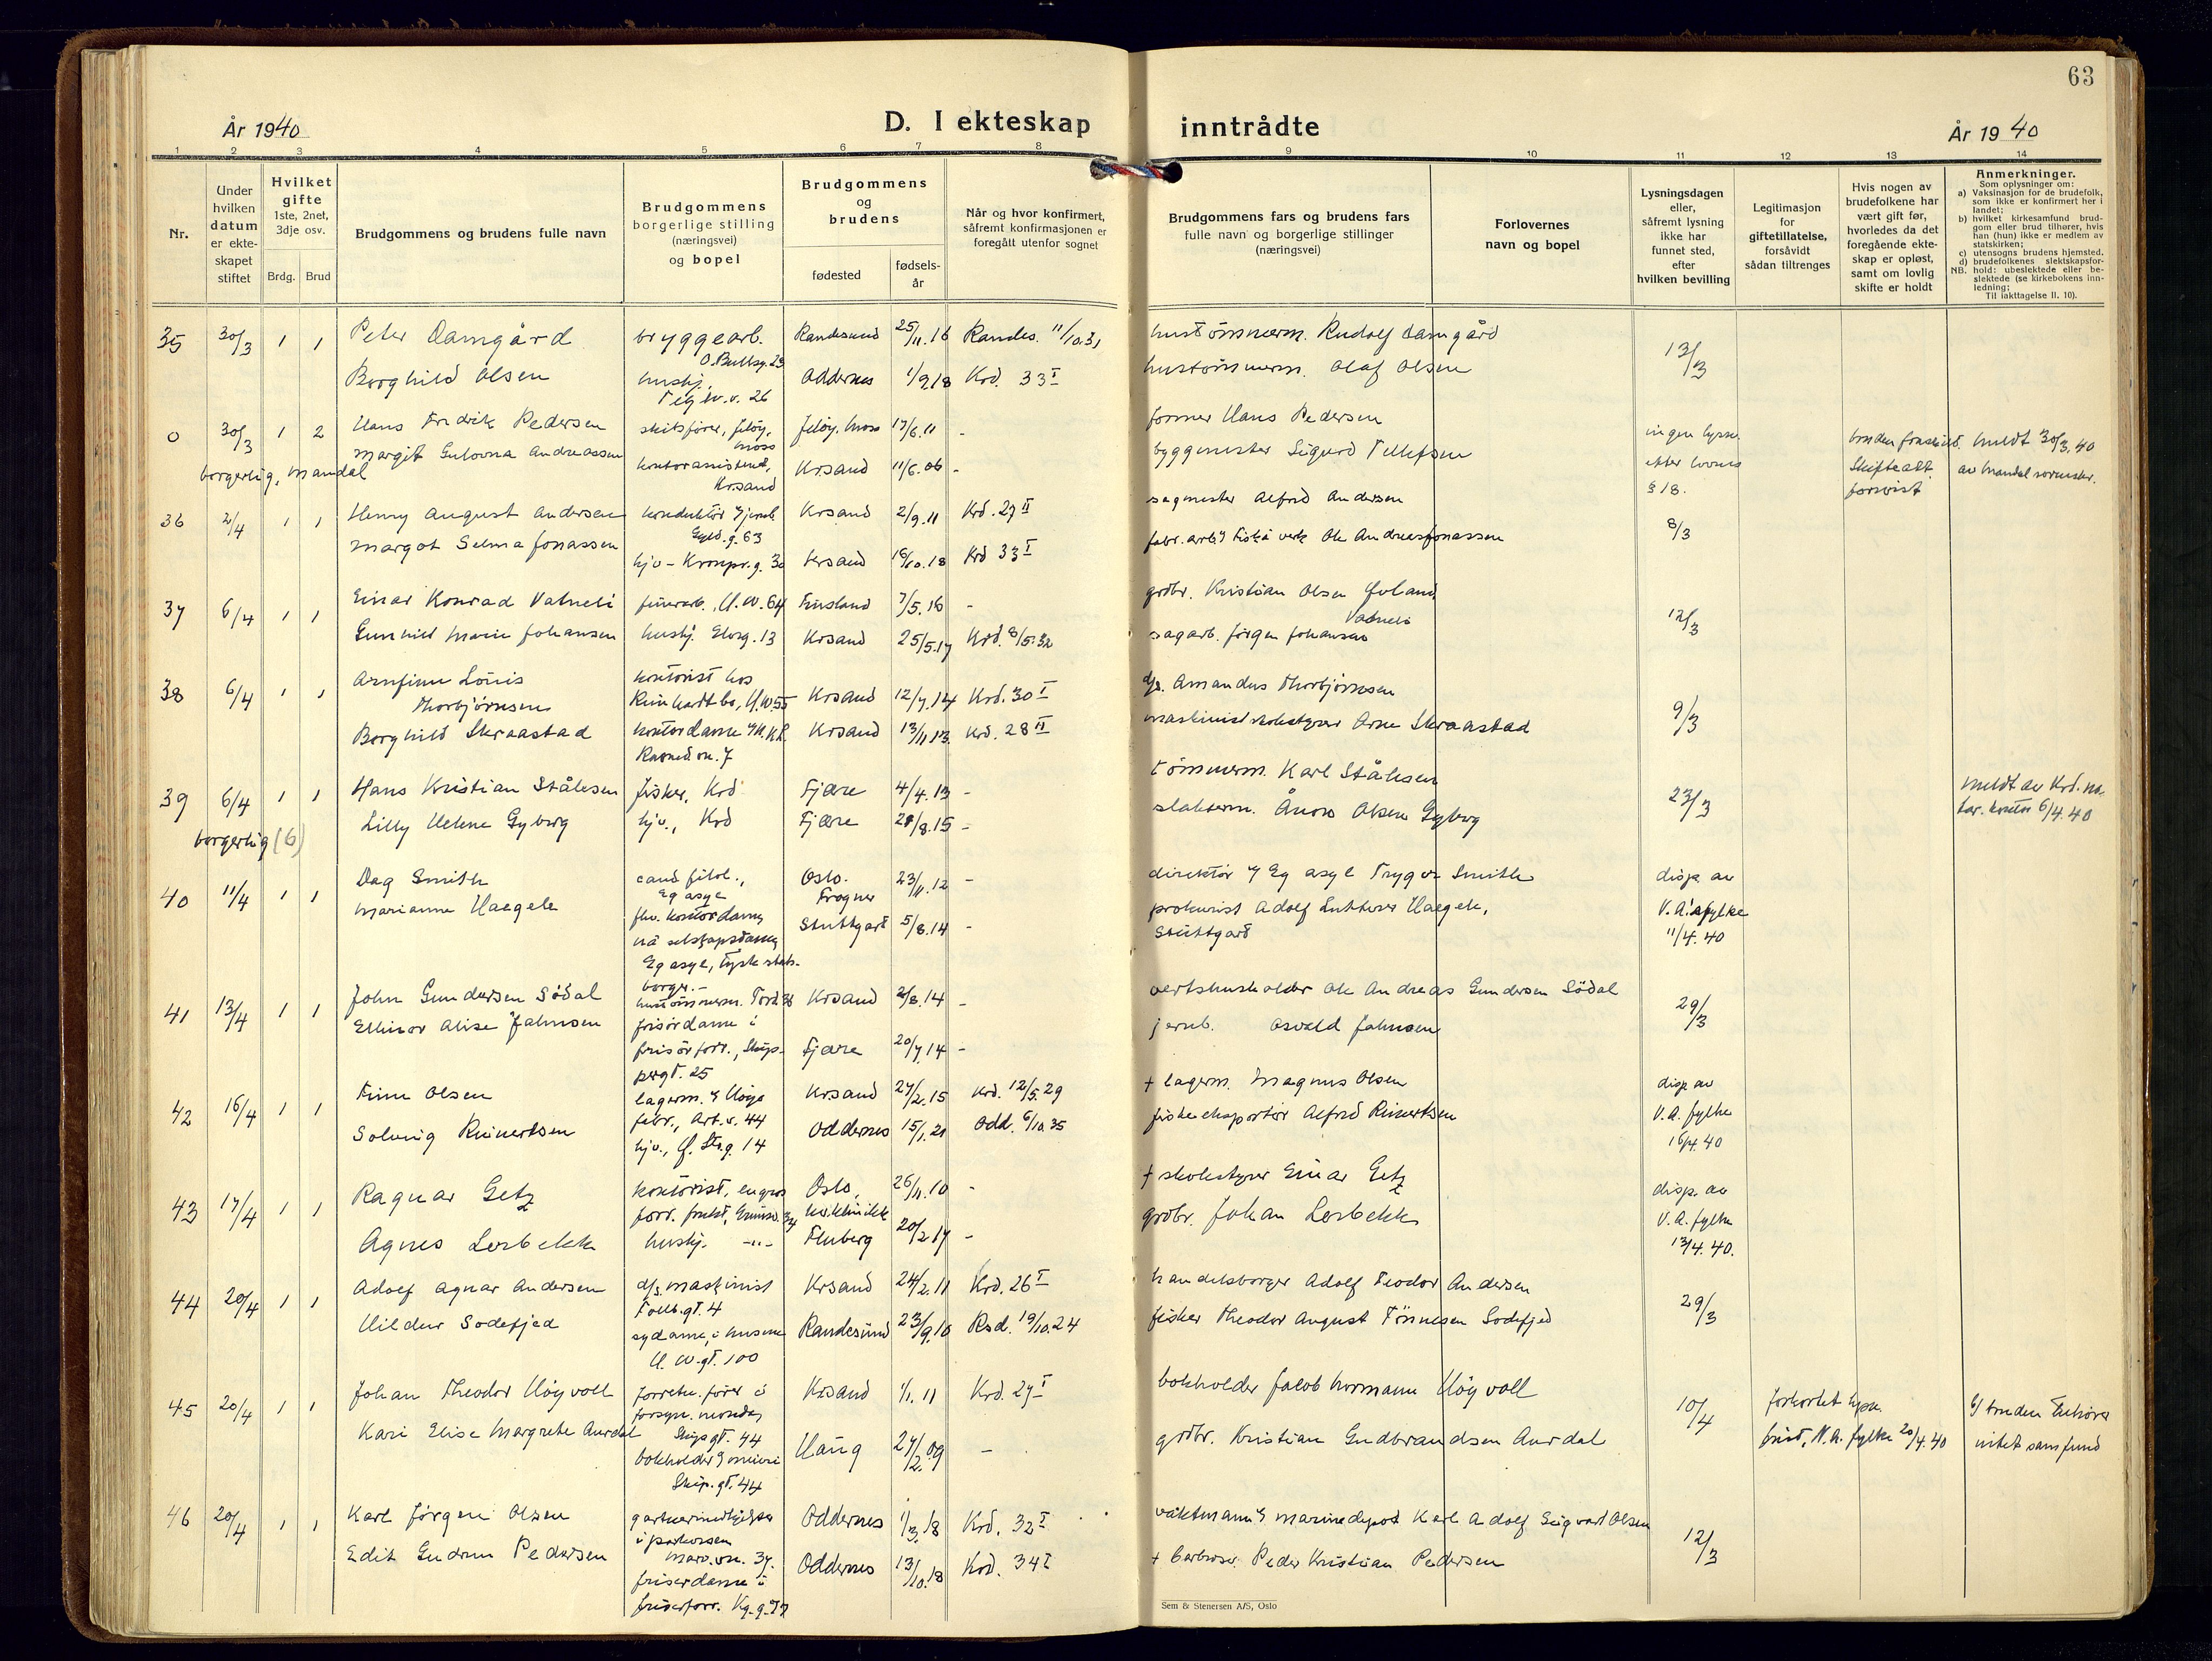 63
År 1940
D. I ekteskap inntrådte
År 1940
1 2 3 4 5 6 7 8 9 10 11 12 13 14
Nr.
Under
hvilken
datum
er ekte-
skapet
stiftet
Hvilket
gifte
1ste, 2net,
3dje osv.
Brdg. Brud
Brudgommens og brudens fulle navn
Brudgommens
borgerlige stilling
(næringsvei)
og bopel
Brudgommens
og
brudens
fødested
fødsels-
år
Når og hvor konfirmert,
såfremt konfirmasjonen er
foregått utenfor sognet
Brudgommens fars og brudens fars
fulle navn og borgerlige stillinger
(næringsvei)
Forlovernes
navn og bopel
Lysningsdagen
eller,
såfremt lysning
ikke har
funnet sted,
efter
hvilken bevilling
Legitimasjon
for
giftetillatelse,
forsåvidt
sådan tiltrenges
Hvis nogen av
brudefolkene har
vært gift før,
hvorledes da det
foregående ekte-
skap er opløst,
samt om lovlig
skifte er holdt
Anmerkninger.
Som oplysninger om:
a) Vaksinasjon for de brudefolk,
som ikke er konfirmert her i
landet;
b) hvilket kirkesamfund brud-
gom eller brud tilhører, hvis
han (hun) ikke er medlem av
statskirken;
c) utensogns brudens hjemsted.
d) brudefolkenes slektskapsfor-
hold: ubeslektede eller be-
slektede (se kirkebokens inn-
ledning;
NB.
Til iakttagelse II. 10).
35 30/3 1 1 Peter Damgård bryggearb. Randesund 25/11.16 Randes. 11/10.31 hustömmerm. Rudolf Damgård 13/3
O. Bullsg. 29
Borghild Olsen hushj. Oddernes 1/9.18 Krd. 33 I hustömmerm. Olaf Olsen
Teglv.v. 26
0 30/3 1 2 Hans Fredrik Pedersen skibsfører, Jeløy, Moss Jeløy, Moss 17/6.11 - former Hans Pedersen
Margit Gulovna Andreassen kontorassistent, Krsand Krsand 11/6.06 - byggmester Sigurd Tellefsen
borgerlig, Mandal
ingen lysn.
etter lovens
§ 18.
bruden fraskilt.
Skifteatt.
forevist
meldt 30/3.40
av Mandal sorenskr.
36 2/4 1 1 Henry August Andersen konduktör Krsand 2/9.11 Krd. 27 II sagmester Alfred Andersen 8/3
Gyld.g. 63
Margot Selma Jonassen hjv - Kronpr.g. 30 Krsand 18/10.18 Krd 33 I fabr. arb. Fiskå verk Ole Andreas Jonassen
37 6/4 1 1 Einar Konrad Vatneli finerarb., H.W. 64 Finsland 7/5.16 - grdbr. Kristian Olsen Øvland 12/3
Vatneli
Gunhild Marie Johansen hushj. Elvg. 13 Krsand 25/5.17 Krd. 8/5.32 sagarb. Jörgen Johansen
38 6/4 1 1 Arnfinn Louis kontorist hos
Thorbjörnsen Reinhardt & Co, H.W. 55 Krsand 12/7.14 Krd. 30 I Amandus Thorbjörnsen 9/3
Borghild Skraastad kontordame Krsand 13/11.13 Krd. 28 II maskinistskolestyrer Arne Skraastad
Ravnedv. 7
39 6/4 1 1 Hans Kristian Stålesen fisker, Krd Fjære 4/4.13 - tömmerm. Karl Stålesen 23/3
Lilly Helene Gyberg hjv., Krd Fjære 28/8.15 - slakterm. Anors Olsen Gyberg
borgerlig (6)
meldt av Krd. no-
tar. kontor 6/4.40
40 11/4 1 1 Dag Smith cand filol., Oslo. 23/11.12 - direktör Eg asyl Trygve Smith disp. av
Eg asyl Frogner
Marianne Haegele fhv. kontordame Stuttgart 5/8.14 - prokurist Adolf Luthner Haegele, V.A. fylke
nå selskapsdame Stuttgart 11/4.40
Eg asyl, tysk stats-
borger. -
41 13/4 1 1 John Gundersen Södal hustömmerm. Krsand 2/8.14 - vertshusholder Ole Andreas Gundersen Södal 29/3
Ellinor Alise Jahnsen frisördame i jernb. Osvald Jahnsen
frisörforr., Skip- Fjære 20/7.14 -
pergt. 25
42 16/4 1 1 Finn Olsen lagerm. Höie Krsand 27/2.15 Krd. 12/5.29 + lagerm. Magnus Olsen disp. av
fabr., Art.v. 44 V.A. fylke
Solveig Reinertsen hjv., Ø. Str.g. 14 Oddernes 15/1.21 Odd. 6/10.35 fiskeeksportör Alfred Reinertsen 16/4.40
43 17/4 1 1 Ragnar Getz kontorist, engros Oslo, 26/11.10 - + skolestyrer Einar Getz disp. av
forr. frukt, kv.klinikk V.A. fylke
Agnes Lerbekk hushj. -"- Fluberg 20/2.17 - grdbr. Johan Lerbekk 13/4.40.
44 20/4 1 1 Adolf Agnar Andersen d/s maskinist Krsand 24/2.11 Krd. 26 I handelsborger Adolf Teodor Andersen 29/3
Tollb.gt. 4
Hildur Sodefjed sydame, i husene Randesund 23/9.10 Rsd. 19/10.24 fisker Theodor August Tönnesen Sodefjed
H.W.gt. 100
45 20/4 1 1 Johan Theodor Höyvoll forretn. förer i Krsand 1/1.11 Krd. 27 I bokholder Jakob Hermann Höyvoll 10/4
Skipgt. 44
Kari Elise Margrete Aurdal bokholder Haug 27/2.09 - grdbr. Kristian Gudbrandsen Aurdal
Skip.gt. 44
forkortet lysn.
frist, V.A. fylke 20/4.40
b) bruden tilhörer
intet samfund
46 20/4 1 1 Karl Jörgen Olsen gartnerimedhjelper Oddernes 1/3.18 Krd. 32 I vaktmann marinedepot Karl Adolf Sigvart Olsen 12/3
i parkvesen
Marv.vn. 37.
Edit Gudrun Pedersen frisørdame i Oddernes 13/10.18 Krd. 34 I + Peder Kristian Pedersen
frisørforr.
Sem & Stenersen A/S, Oslo